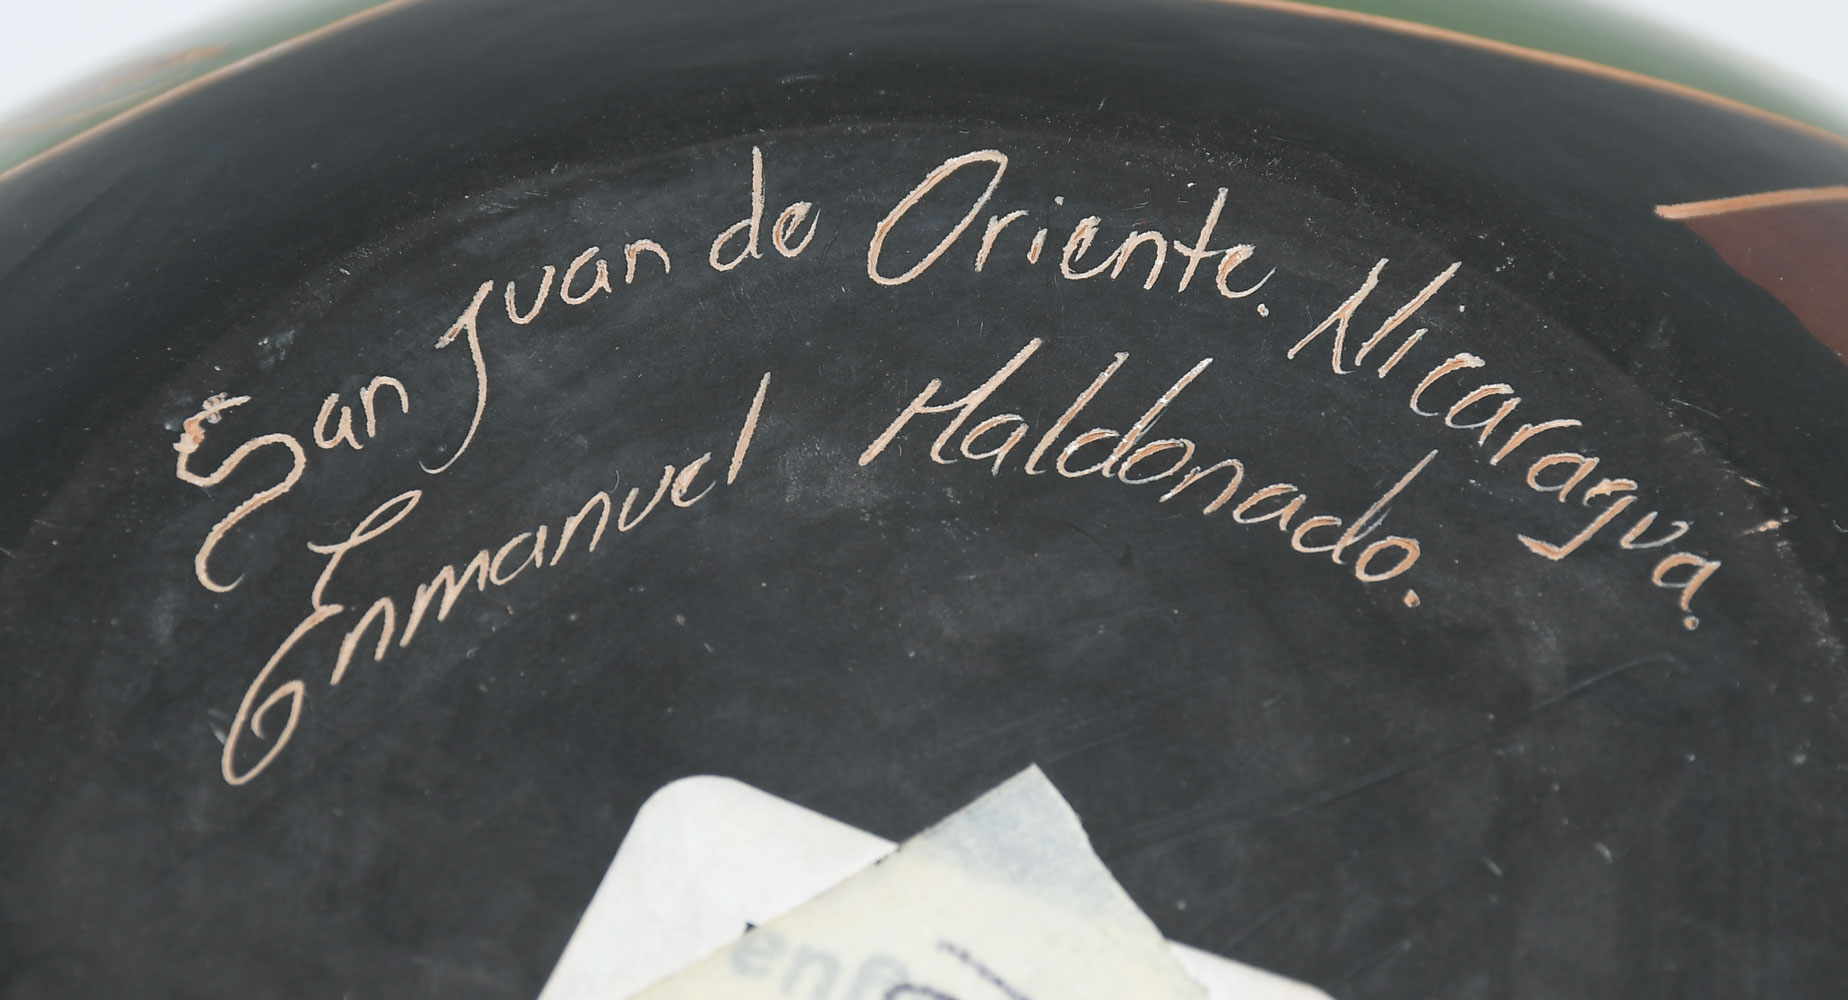 San Juan de Oriente. Nicaragua.
Enmanuel Maldonado.